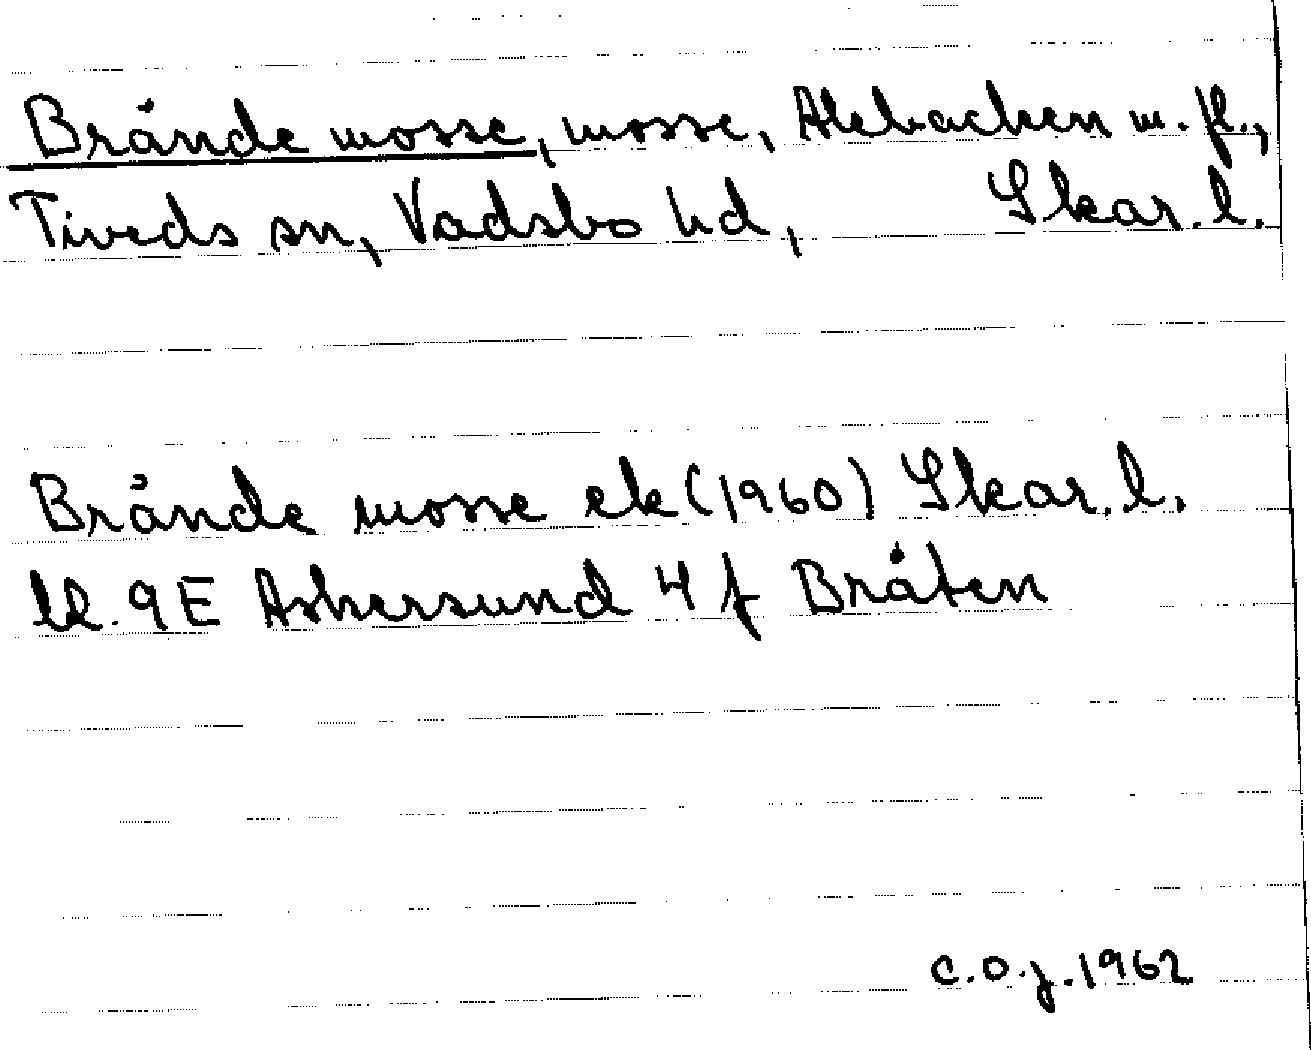 Brånde mosse, mosse, Alebacken m. fl.,
Tiveds sn, Vadsbo hd, Skar. l.
Brånde mosse ek (1960) Skar. l.
bl. 9E Askersund 4 f Bråten
C.O.J. 1962